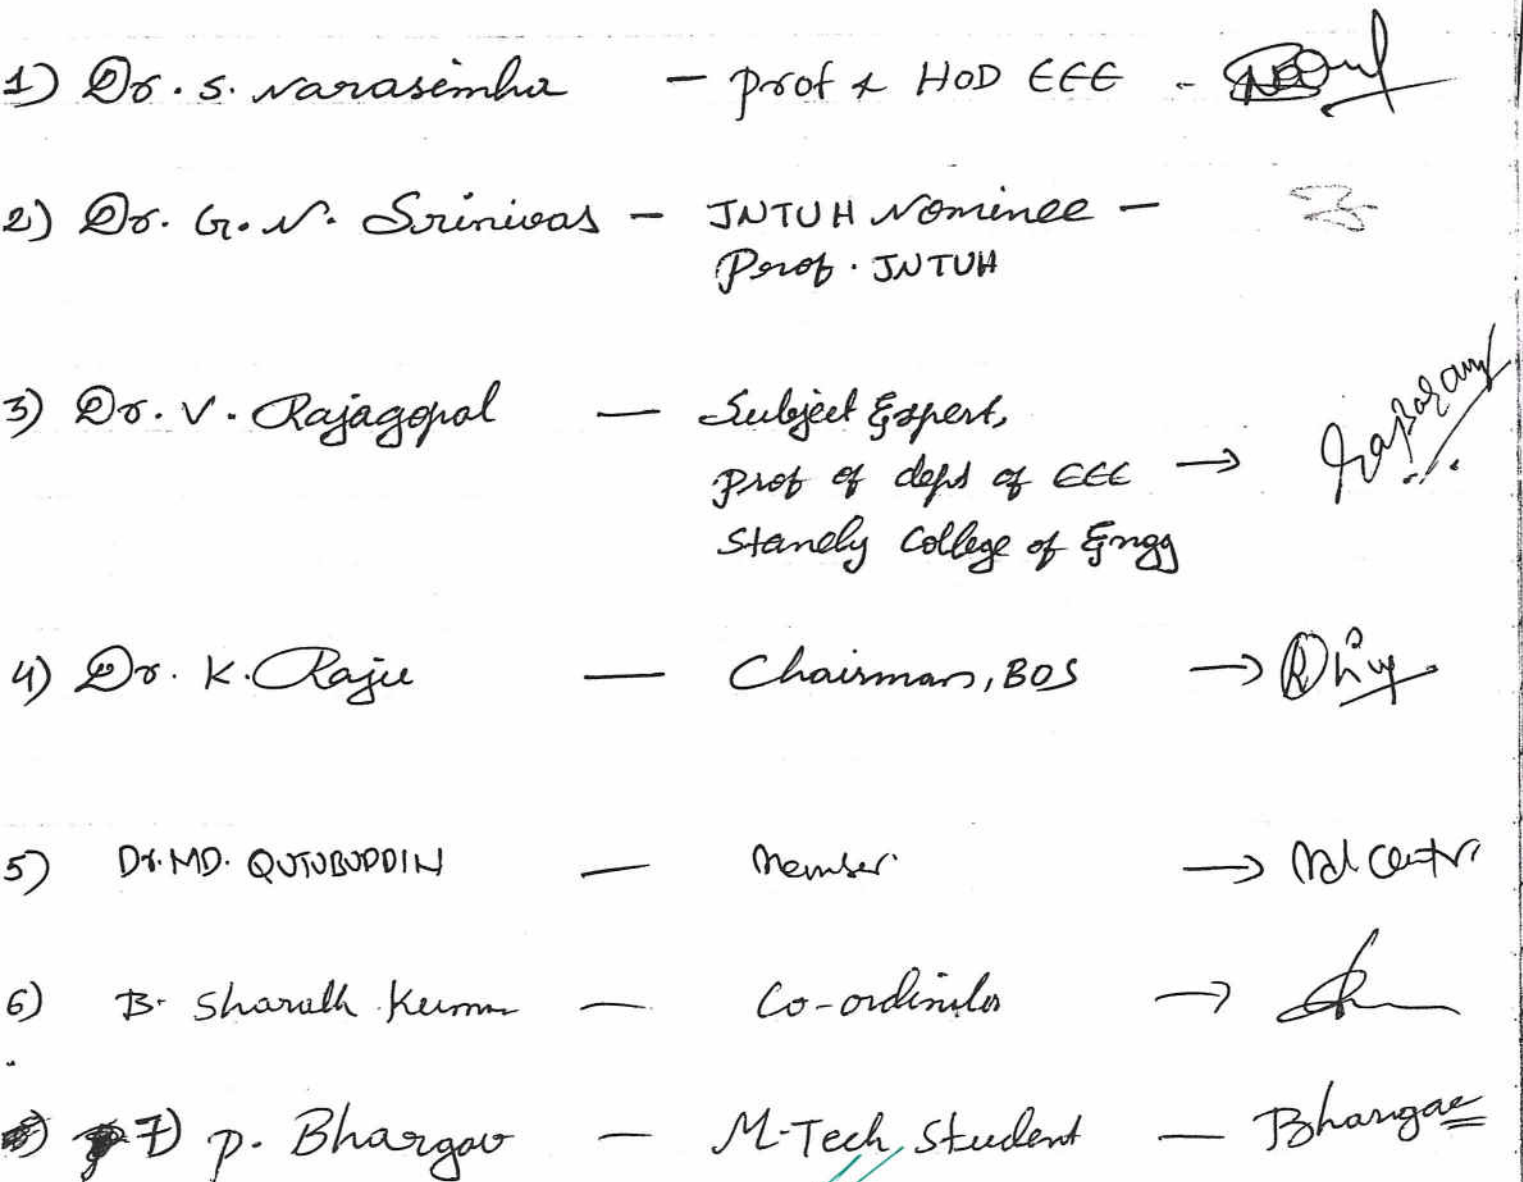 1) Dr. S. Narasimha - prof & HOD EEE -
2) Dr. G. N. Srinivas - JNTUH Nominee -
Prof. JNTUH
3) Dr. V. Rajagopal - Subject Expert,
Prof of dept of EEE →
Stanely College of Engg
4) Dr. K. Raju - Chairman, BOS →
5) Dr. MD. QUTUBUDDIN - Member →
6) B. Sharath Kumar - Co-ordinator →
7) P. Bhargav - M-Tech Student - Bhargav